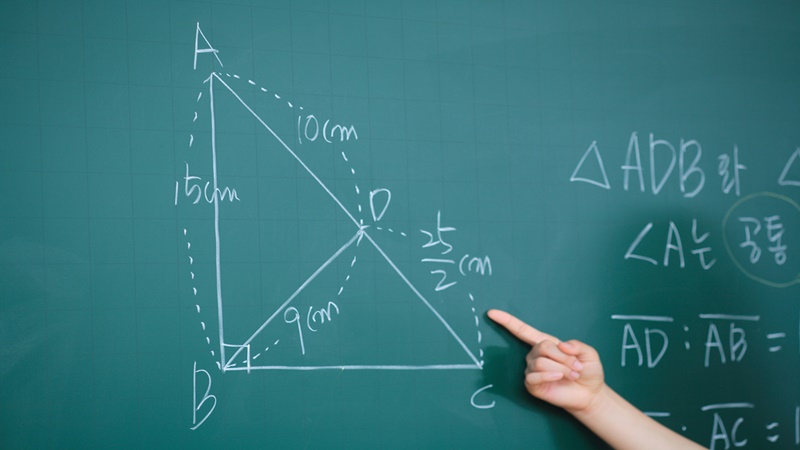 A
10cm
15cm
D
25/2 cm
9cm
B
C
△ADB와 △
∠A는 공통
AD : AB =
: AC = 1